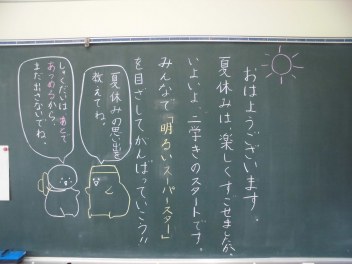 おはようございます。
夏休みは楽しくすごせましたか。
いよいよ、二学きのスタートです。
みんなで「明るいスーパースター」
を目ざしてがんばっていこう!!
夏休みの思い出を
教えてね。
しゅくだいは あとで
あつめるから、
まだ出さないでね。